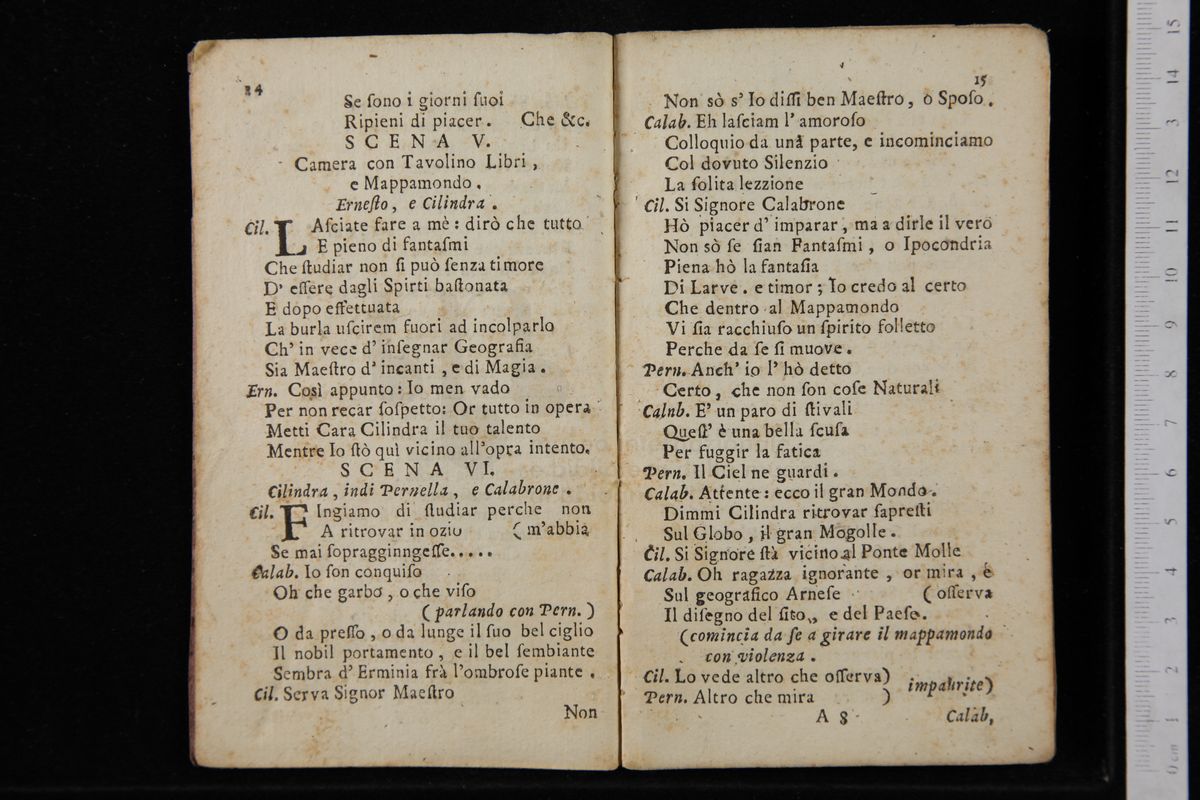 14
Se ſono i giorni ſuoi
Ripieni di piacer. Che &c.
SCENA V.
Camera con Tavolino Libri,
e Mappamondo.
Erneſto, e Cilindra.
Cil. LAſciate fare a mè: dirò che tutto
E pieno di fantaſmi
Che ſtudiar non ſi può ſenza timore
D' eſſere dagli Spirti baſtonata
E dopo effettuata
La burla uſcirem fuori ad incolparlo
Ch' in vece d' inſegnar Geografia
Sia Maeſtro d' incanti, e di Magia.
Ern. Così appunto: Io men vado
Per non recar ſoſpetto: Or tutto in opera
Metti Cara Cilindra il tuo talento
Mentre Io ſtò quì vicino all'opra intento.
SCENA VI.
Cilindra, indi Pernella, e Calabrone.
Cil. FIngiamo di ſtudiar perche non
A ritrovar in ozio (m'abbia
Se mai ſopragginngeſſe.....
Calab. Io ſon conquiſo
Oh che garbo, o che viſo
(parlando con Pern.)
O da preſſo, o da lunge il ſuo bel ciglio
Il nobil portamento, e il bel ſembiante
Sembra d' Erminia frà l'ombroſe piante.
Cil. Serva Signor Maeſtro
Non
15
Non sò s' Io diſſi ben Maeſtro, o Spoſo.
Calab. Eh laſciam l' amoroſo
Colloquio da una parte, e incominciamo
Col dovuto Silenzio
La ſolita lezzione
Cil. Si Signore Calabrone
Hò piacer d' imparar, ma a dirle il vero
Non sò ſe ſian Fantaſmi, o Ipocondria
Piena hò la fantaſia
Di Larve. e timor; Io credo al certo
Che dentro al Mappamondo
Vi ſia racchiuſo un ſpirito folletto
Perche da ſe ſi muove.
Pern. Anch' io l' hò detto
Certo, che non ſon coſe Naturali
Calnb. E' un paro di ſtivali
Queſt' è una bella ſcuſa
Per fuggir la fatica
Pern. Il Ciel ne guardi.
Calab. Attente: ecco il gran Mondo.
Dimmi Cilindra ritrovar ſapreſti
Sul Globo, il gran Mogolle.
Cil. Si Signore ſtà vicino al Ponte Molle
Calab. Oh ragazza ignorante, or mira, e
Sul geografico Arneſe (oſſerva
Il diſegno del ſito, e del Paeſe.
(comincia da ſe a girare il mappamondo
con violenza.
Cil. Lo vede altro che oſſerva)
impaurite)
Pern. Altro che mira )
A 8 Calab,